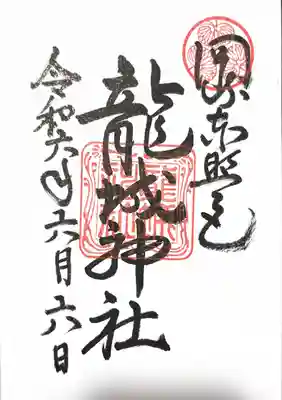 岡崎東照宮
龍城神社
令和六年六月六日